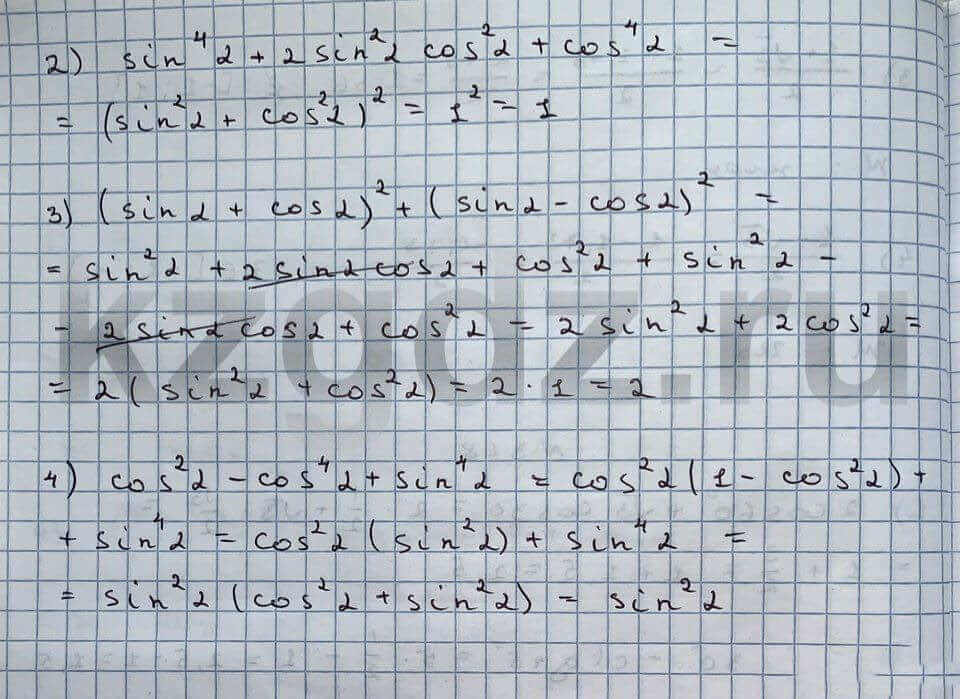 2) sin⁴α + 2 sin²α cos²α + cos⁴α =
= (sin²α + cos²α)² = 1² = 1
3) (sinα + cosα)² + (sinα - cosα)² =
= sin²α + 2 sinα cosα + cos²α + sin²α -
- 2 sinα cosα + cos²α = 2 sin²α + 2 cos²α =
= 2 (sin²α + cos²α) = 2 · 1 = 2
4) cos²α - cos⁴α + sin⁴α = cos²α (1 - cos²α) +
+ sin⁴α = cos²α (sin²α) + sin⁴α =
= sin²α (cos²α + sin²α) = sin²α
kzgdz.ru